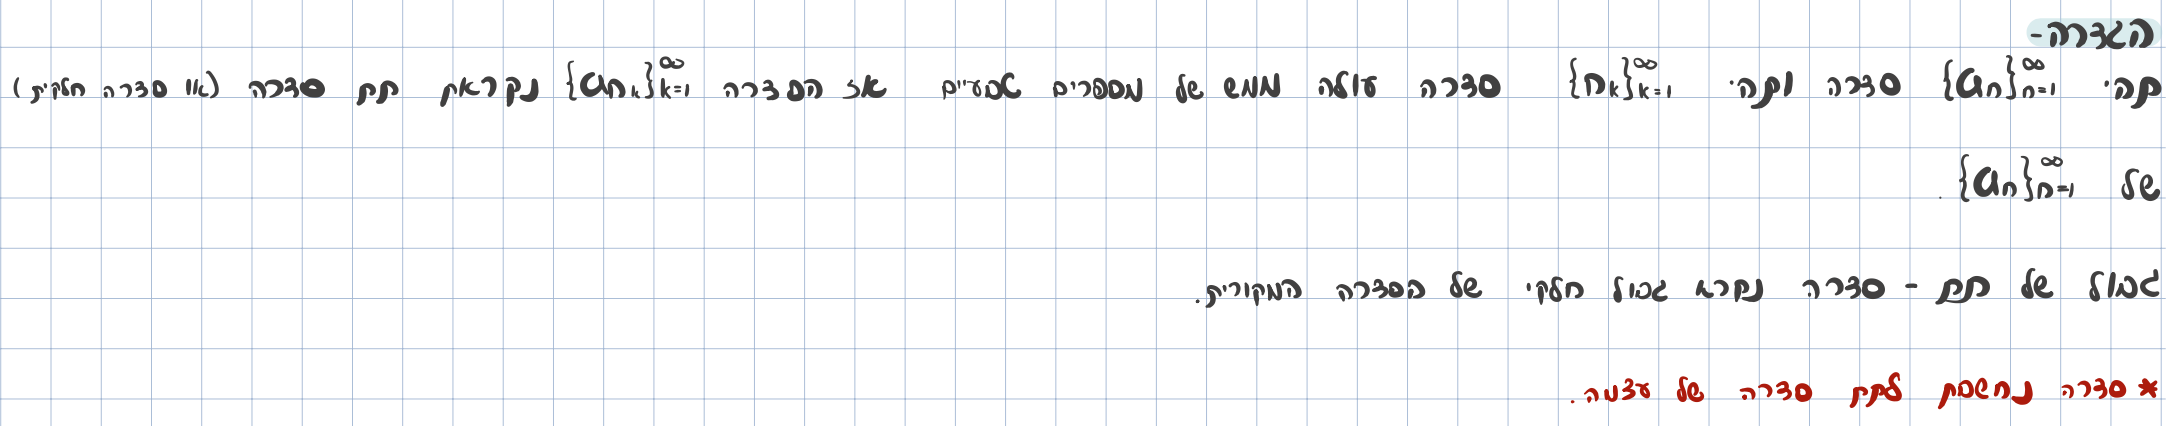 הגדרה-
תהי $\{a_n\}_{n=1}^{\infty}$ סדרה ותהי $\{n_k\}_{k=1}^{\infty}$ סדרה עולה ממש של מספרים טבעיים אז הסדרה $\{a_{n_k}\}_{k=1}^{\infty}$ נקראת תת סדרה (או סדרה חלקית)
של $\{a_n\}_{n=1}^{\infty}$.
גבול של תת - סדרה נקרא גבול חלקי של הסדרה המקורית.
* סדרה נחשבת לתת סדרה של עצמה.